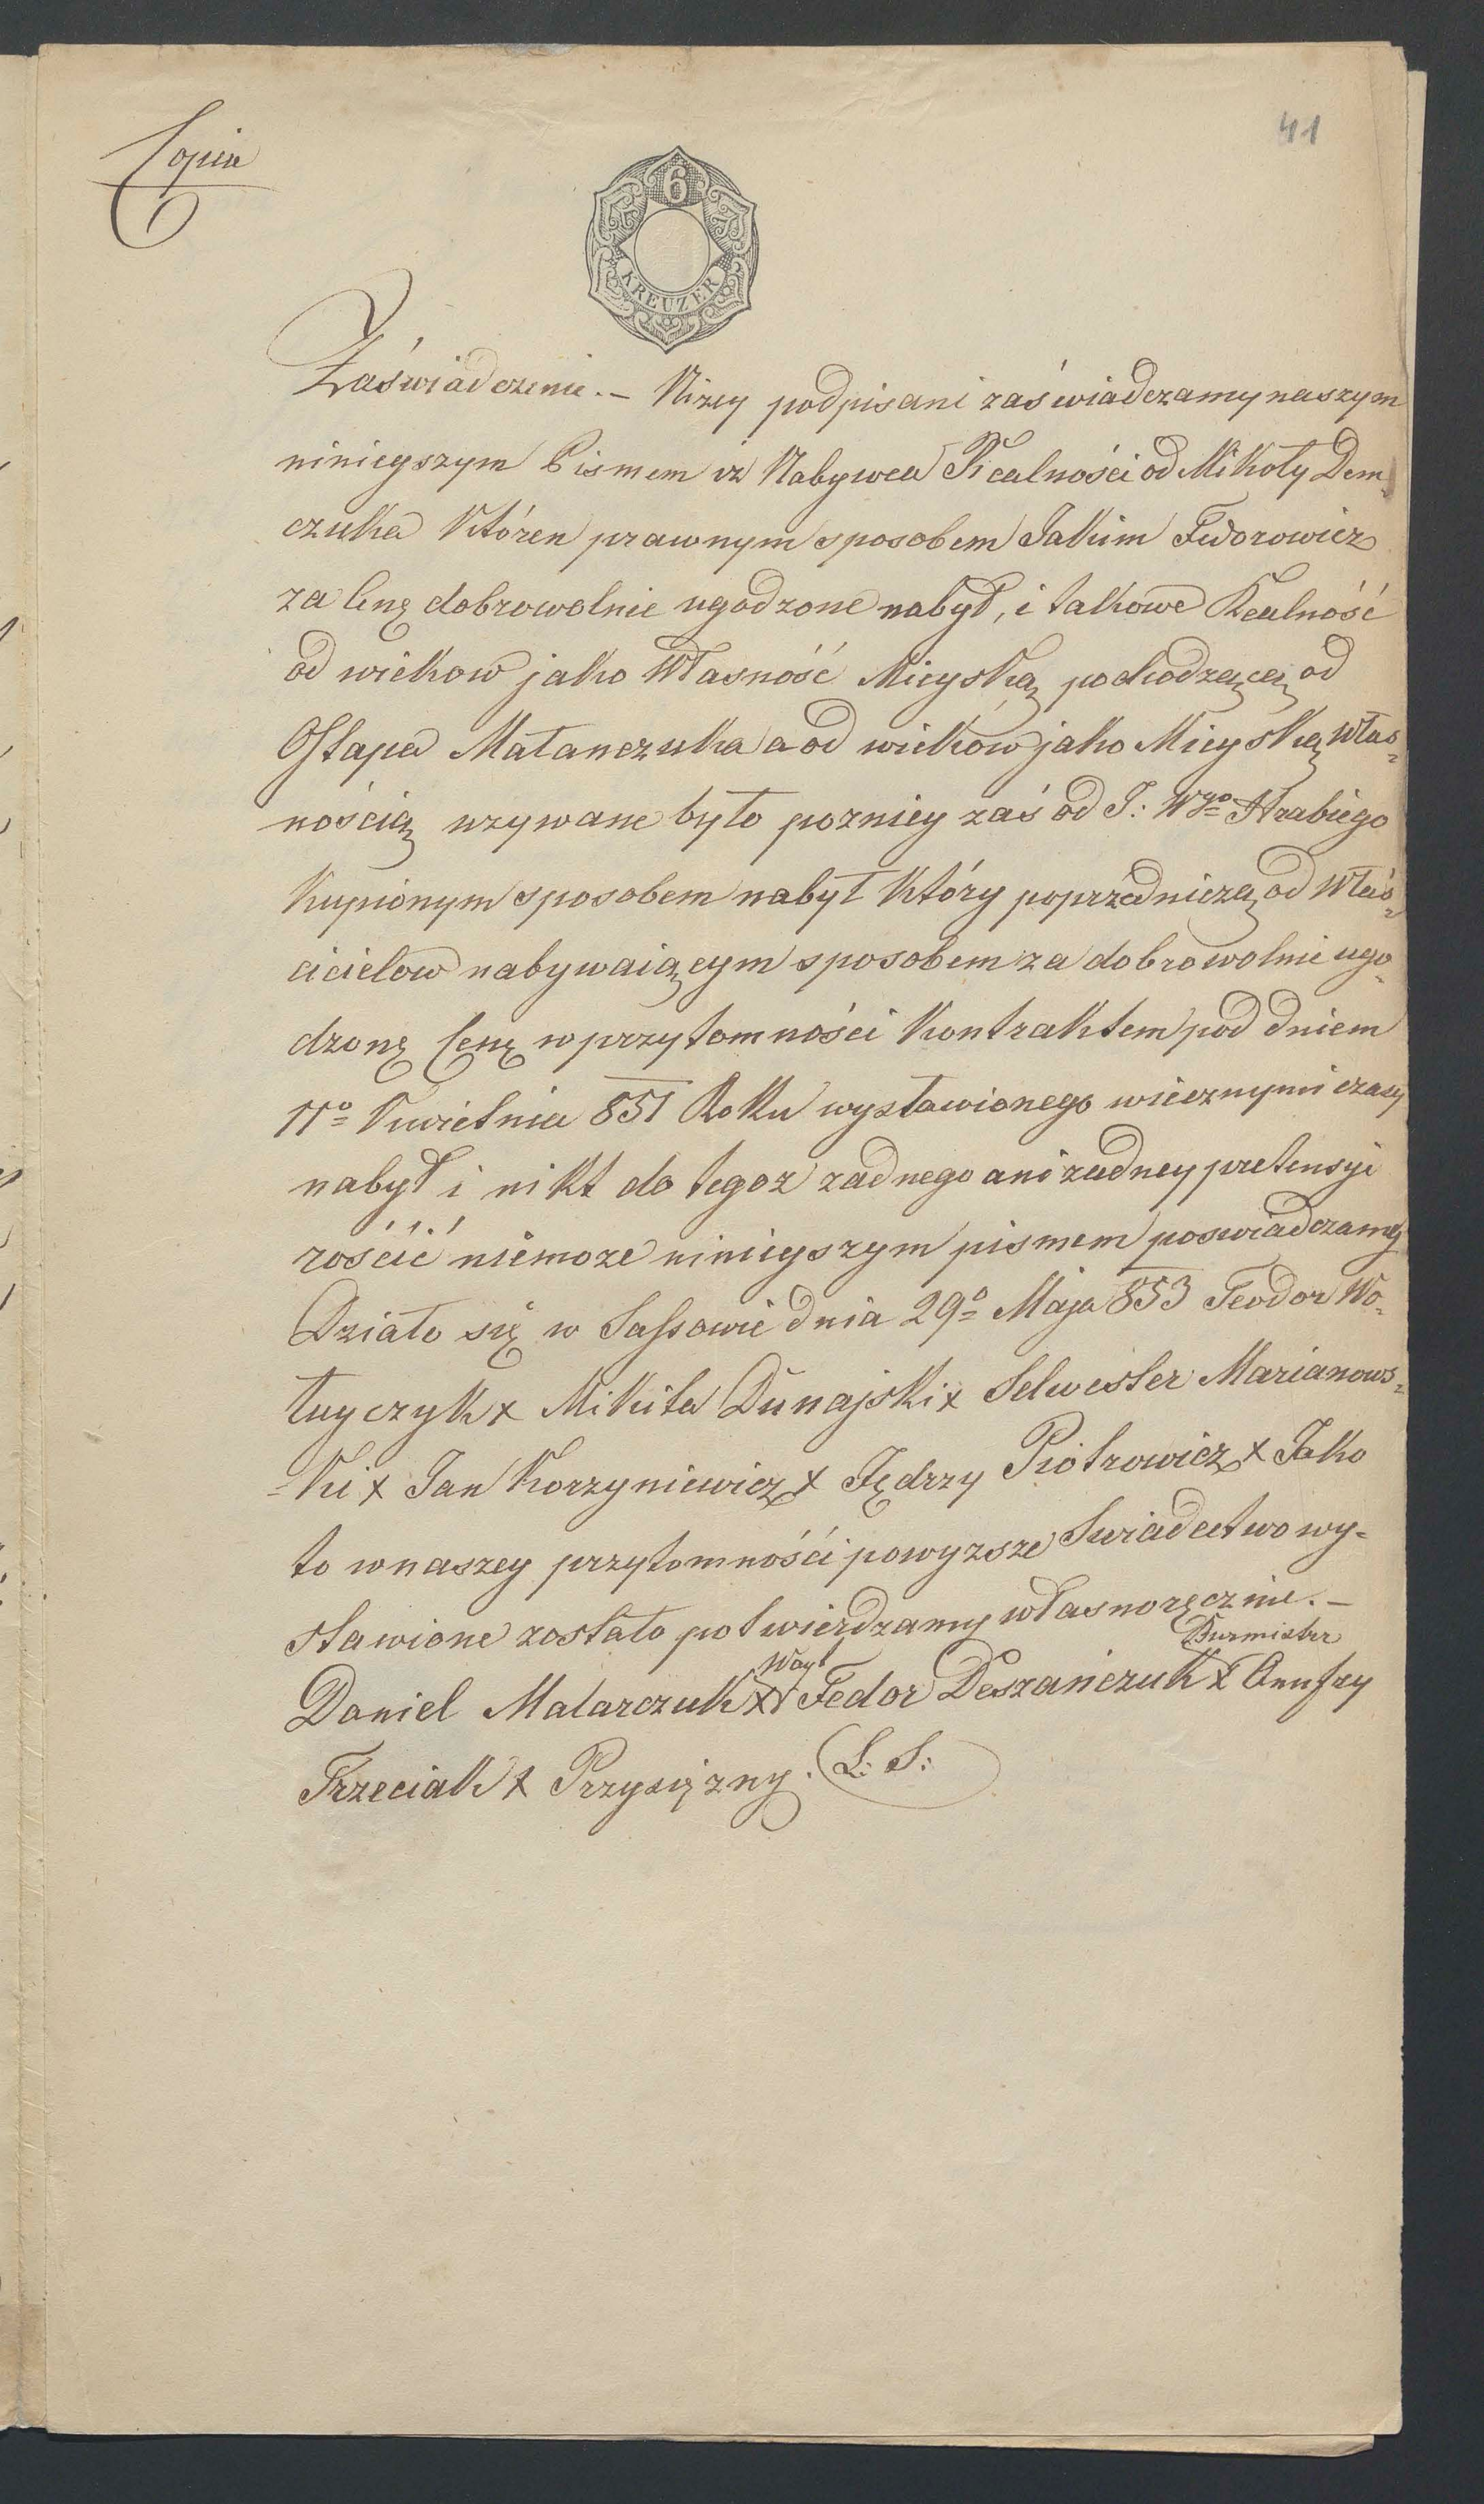 41
Copia
6
KREUZER
Zaświadczenie. – Niżey podpisani zaświadczamy naszym
ninieyszym Pismem iż Nabywca Realności od Mikoły Dem-
czuka Któren prawnym sposobem Jakim Fedorowicz
za Cenę dobrowolnie ugodzone nabył, i takowe Realność
od wiekow jako Własność Mieyską pochodzącą od
Ostapa Matanczuka a od wieków jako Mieyską Włas-
nością uzywane było pozniey zaś od J: Wgo Hrabiego
Kupionym sposobem nabył Który poprzedniczą od Właś-
cicielow nabywaiącym sposobem za dobrowolnie ugo-
dzonę Cenę w przytomności Kontraktem pod dniem
11o Kwietnia 851 Roku wystawionego wiecznymi czasy
nabył i nikt do tegoz zadnego ani zadney pretensyi
rościć niemoze ninieyszym pismem poswiadczamy
Działo się w Sassowie dnia 29o Maja 853 Teodor Wo-
łuyczyk x Mikita Dunajski x Selwester Marianows-
-ki x Jan Korzyniewicz x Jędrzy Piotrowicz x Jako
to w naszey przytomności powyzsze Swiadectwo wy-
stawione zostało potwierdzamy własnoręcznie. –
Daniel Malarczuk x Wayt Fedor Deszańczuk x Burmister Onufry
Trzeciak x Przysiężny. L: S: